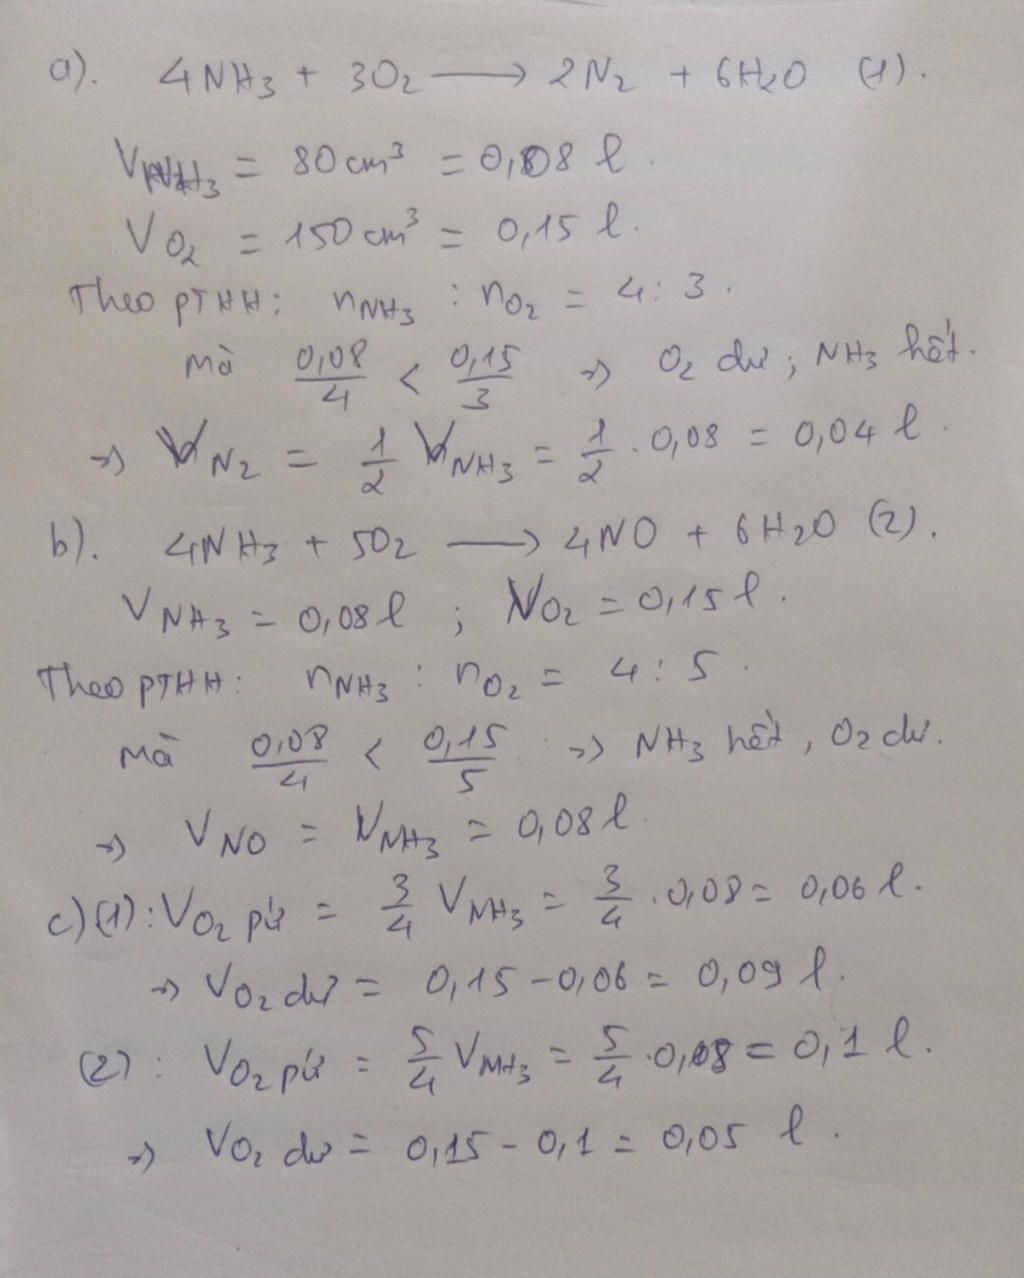 a). 4NH₃ + 3O₂ ⟶ 2N₂ + 6H₂O (1).
V_NH₃ = 80 cm³ = 0,08 l.
V_O₂ = 150 cm³ = 0,15 l.
Theo PTHH: n_NH₃ : n_O₂ = 4 : 3.
mà 0,08/4 < 0,15/3 => O₂ dư ; NH₃ hết.
=> V_N₂ = 1/2 V_NH₃ = 1/2 . 0,08 = 0,04 l.
b). 4NH₃ + 5O₂ ⟶ 4NO + 6H₂O (2).
V_NH₃ = 0,08 l ; V_O₂ = 0,15 l.
Theo PTHH: n_NH₃ : n_O₂ = 4 : 5.
Mà 0,08/4 < 0,15/5 => NH₃ hết, O₂ dư.
=> V_NO = V_NH₃ = 0,08 l.
c) (1): V_O₂ pứ = 3/4 V_NH₃ = 3/4 . 0,08 = 0,06 l.
=> V_O₂ dư = 0,15 - 0,06 = 0,09 l.
(2): V_O₂ pứ = 5/4 V_NH₃ = 5/4 . 0,08 = 0,1 l.
=> V_O₂ dư = 0,15 - 0,1 = 0,05 l.